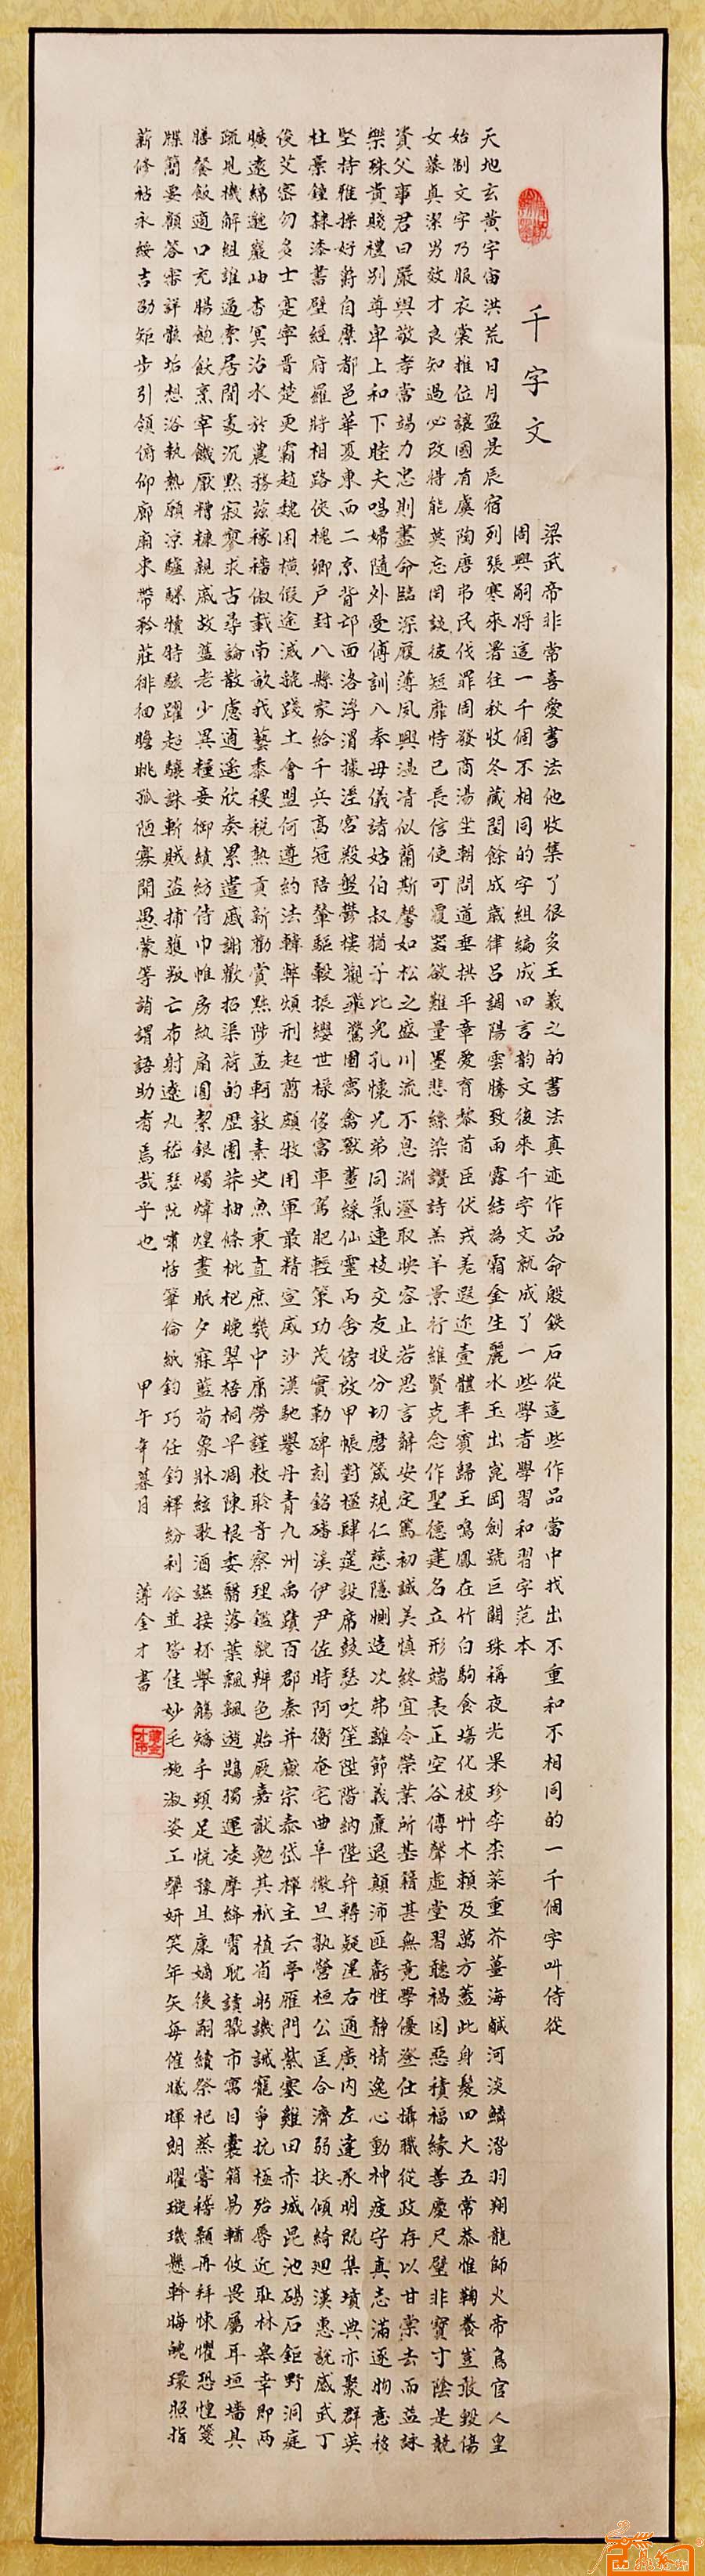 梁武帝非常喜愛書法他收集了很多王羲之的書法真迹作品命殷鉄石從這些作品當中找出不重和不相同的一千個字叫侍從
周興嗣將這一千個不相同的字組編成四言韵文後來千字文就成了一些學者學習和習字范本
千字文
天地玄黃宇宙洪荒日月盈昃辰宿列張寒來暑往秋收冬藏閏餘成歲律呂調陽雲騰致雨露結為霜金生麗水玉出崑岡劍號巨闕珠稱夜光果珍李柰菜重芥薑海鹹河淡鱗潛羽翔龍師火帝鳥官人皇
始制文字乃服衣裳推位讓國有虞陶唐弔民伐罪周發商湯坐朝問道垂拱平章愛育黎首臣伏戎羌遐迩壹體率賓歸王鳴鳳在竹白駒食場化被艸木賴及萬方蓋此身髮四大五常恭惟鞠養豈敢毀傷
女慕真潔男效才良知過必改得能莫忘罔談彼短靡恃己長信使可覆器欲難量墨悲絲染讚詩羔羊景行維賢克念作聖德建名立形端表正空谷傳聲虛堂習聽禍因惡積福緣善慶尺璧非寶寸陰是競
資父事君曰嚴與敬孝當竭力忠則盡命臨深履薄夙興溫凊似蘭斯馨如松之盛川流不息淵澄取映容止若思言辭安定篤初誠美慎終宜令榮業所基籍甚無竟學優登仕攝職從政存以甘棠去而益詠
樂殊貴賤禮別尊卑上和下睦夫唱婦隨外受傅訓入奉母儀諸姑伯叔猶子比兒孔懷兄弟同氣連枝交友投分切磨箴規仁慈隱惻造次弗離節義廉退顛沛匪虧性靜情逸心動神疲守真志滿逐物意移
堅持雅操好爵自縻都邑華夏東西二京背邙面洛浮渭據涇宮殿盤鬱樓觀飛驚圖寫禽獸畫綵仙靈丙舍傍啟甲帳對楹肆筵設席鼓瑟吹笙陞階納陛弁轉疑星右通廣內左達承明既集墳典亦聚群英
杜稾鍾隸漆書壁經府羅將相路俠槐卿戶封八縣家給千兵高冠陪輦驅轂振纓世祿侈富車駕肥輕策功茂實勒碑刻銘磻溪伊尹佐時阿衡奄宅曲阜微旦孰營桓公匡合濟弱扶傾綺迴漢惠說感武丁
俊乂密勿多士寔寧晉楚更霸趙魏困橫假途滅虢踐土會盟何遵約法韓弊煩刑起翦頗牧用軍最精宣威沙漠馳譽丹青九州禹蹟百郡秦并嶽宗泰岱禪主云亭雁門紫塞雞田赤城昆池碣石鉅野洞庭
曠遠綿邈巖岫杳冥治本於農務茲稼穡俶載南畝我藝黍稷稅熟貢新勸賞黜陟孟軻敦素史魚秉直庶幾中庸勞謹敕聆音察理鑑貌辨色貽厥嘉猷勉其祗植省躬譏誡寵爭抗極殆辱近恥林皋幸即兩
疏見機解組誰逼索居閒處沉默寂寥求古尋論散慮逍遙欣奏累遣慼謝歡招渠荷的歷園莽抽條枇杷晚翠梧桐早凋陳根委翳落葉飄颻遊鵾獨運凌摩絳霄耽讀翫市寓目囊箱易輶攸畏屬耳垣墻具
膳餐飯適口充腸飽飫烹宰饑厭糟糠親戚故舊老少異糧妾御績紡侍巾帷房紈扇圓絜銀燭煒煌晝眠夕寐藍荀象牀絃歌酒讌接杯舉觴矯手頓足悅豫且康嫡後嗣續祭祀蒸嘗稽顙再拜悚懼恐惶箋
牒簡要顧答審詳骸垢想浴執熱願涼驢騾犢特駭躍超驤誅斬賊盜捕獲叛亡布射遼丸嵇琴阮嘯恬筆倫紙鈞巧任釣釋紛利俗並皆佳妙毛施淑姿工顰妍笑年矢每催曦暉朗曜璇璣懸斡晦魄環照指
薪修祜永綏吉劭矩步引領俯仰廊廟束帶矜莊徘徊瞻眺孤陋寡聞愚蒙等誚謂語助者焉哉乎也
甲午年暮月
薄金才書
薄金才印